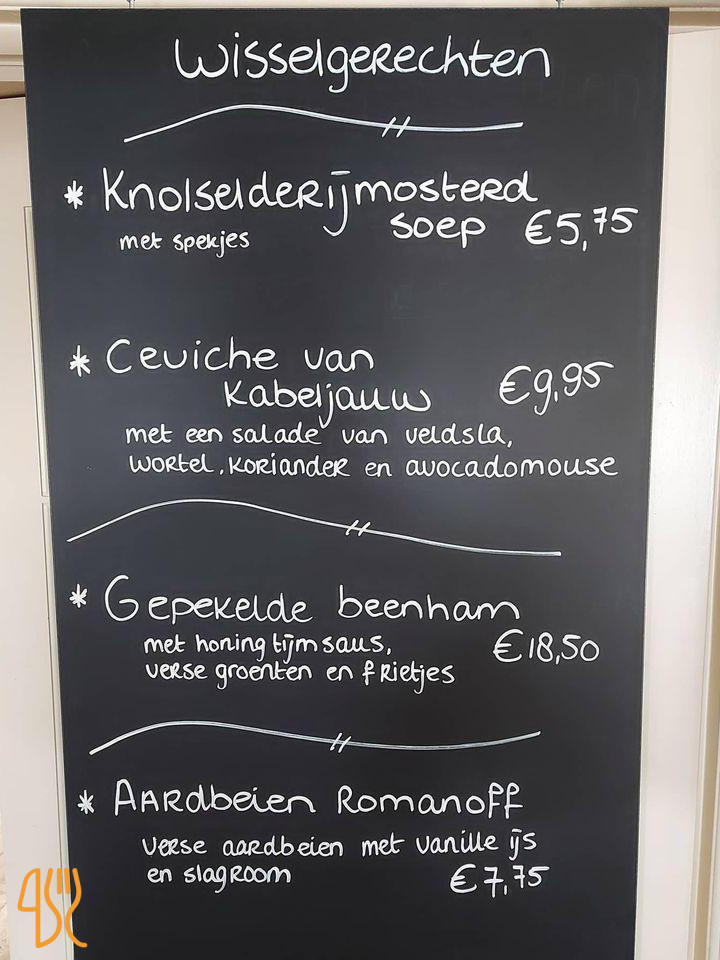 Wisselgerechten
* Knolselderijmosterd
soep €5,75
met spekjes
* Ceviche van
Kabeljauw €9,95
met een salade van veldsla,
wortel, koriander en avocadomouse
* Gepekelde beenham
met honing tijm saus, €18,50
verse groenten en frietjes
* Aardbeien Romanoff
verse aardbeien met vanille ijs
en slagroom €7,75